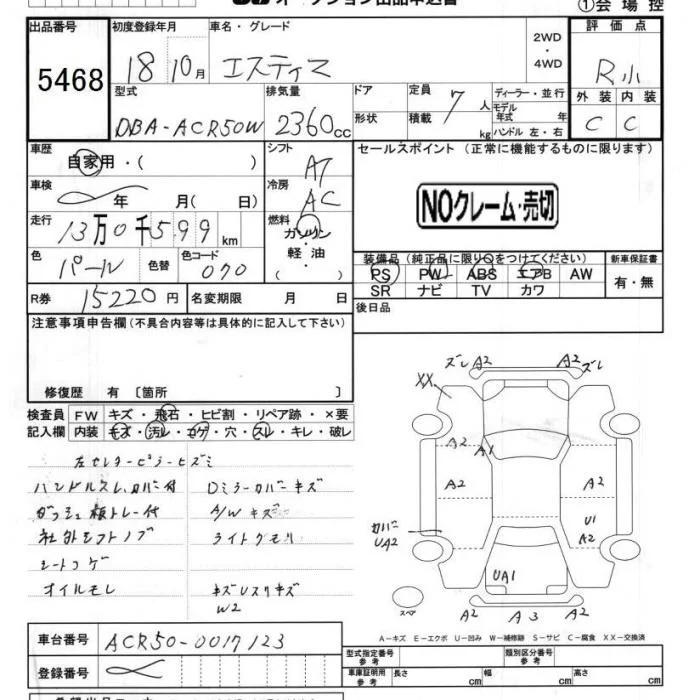 ①会場控
出品番号 初度登録年月 車名・グレード 2WD・4WD 評価点
5468 18 10月 エスティマ R小
型式 排気量 ドア形状 定員 7人 積載 kg ディーラー・並行 モデル年式 年 ハンドル 左・右 外装 内装
DBA-ACR50W 2360cc C C
車歴 自家用・( ) シフト AT セールスポイント (正常に機能するものに限ります)
車検 年 月( 日) 冷房 AC
NOクレーム・売切
走行 13万0千599km 燃料 ガソリン・軽油 ( )
色 パール 色替 色コード 070
装備品 (純正品に限り○をつけてください) 新車保証書
PS PW ABS エアB AW 有・無
SR ナビ TV カワ
R券 15220円 名変期限 月 日 後日品
注意事項申告欄 (不具合内容等は具体的に記入して下さい)
修復歴 有 〔箇所 〕
検査員 FW キズ・飛石・ヒビ割・リペア跡・×要
記入欄 内装 キズ・汚レ・コゲ・穴・スレ・キレ・破レ
左センターピラーヒズミ
ハンドルスレ、カバー付 Dミラーカバーキズ
ダッシュ板トレー付 A/Wキズ
社外シフトノブ ライトクモリ
シートコゲ
オイルモレ
W2
ズレ A2 A2 ズレ
XX
A2 A1
A2 A2
カバー UA2 U1 A2
UA1
スペア A2 A3 A2
A-キズ E-エクボ U-凹み W-補修跡 S-サビ C-腐食 XX-交換済
車台番号 ACR50-0017123
型式指定番号 参考 類別区分番号 参考
登録番号
車庫証明用 参考 長さ cm 幅 cm 高さ cm